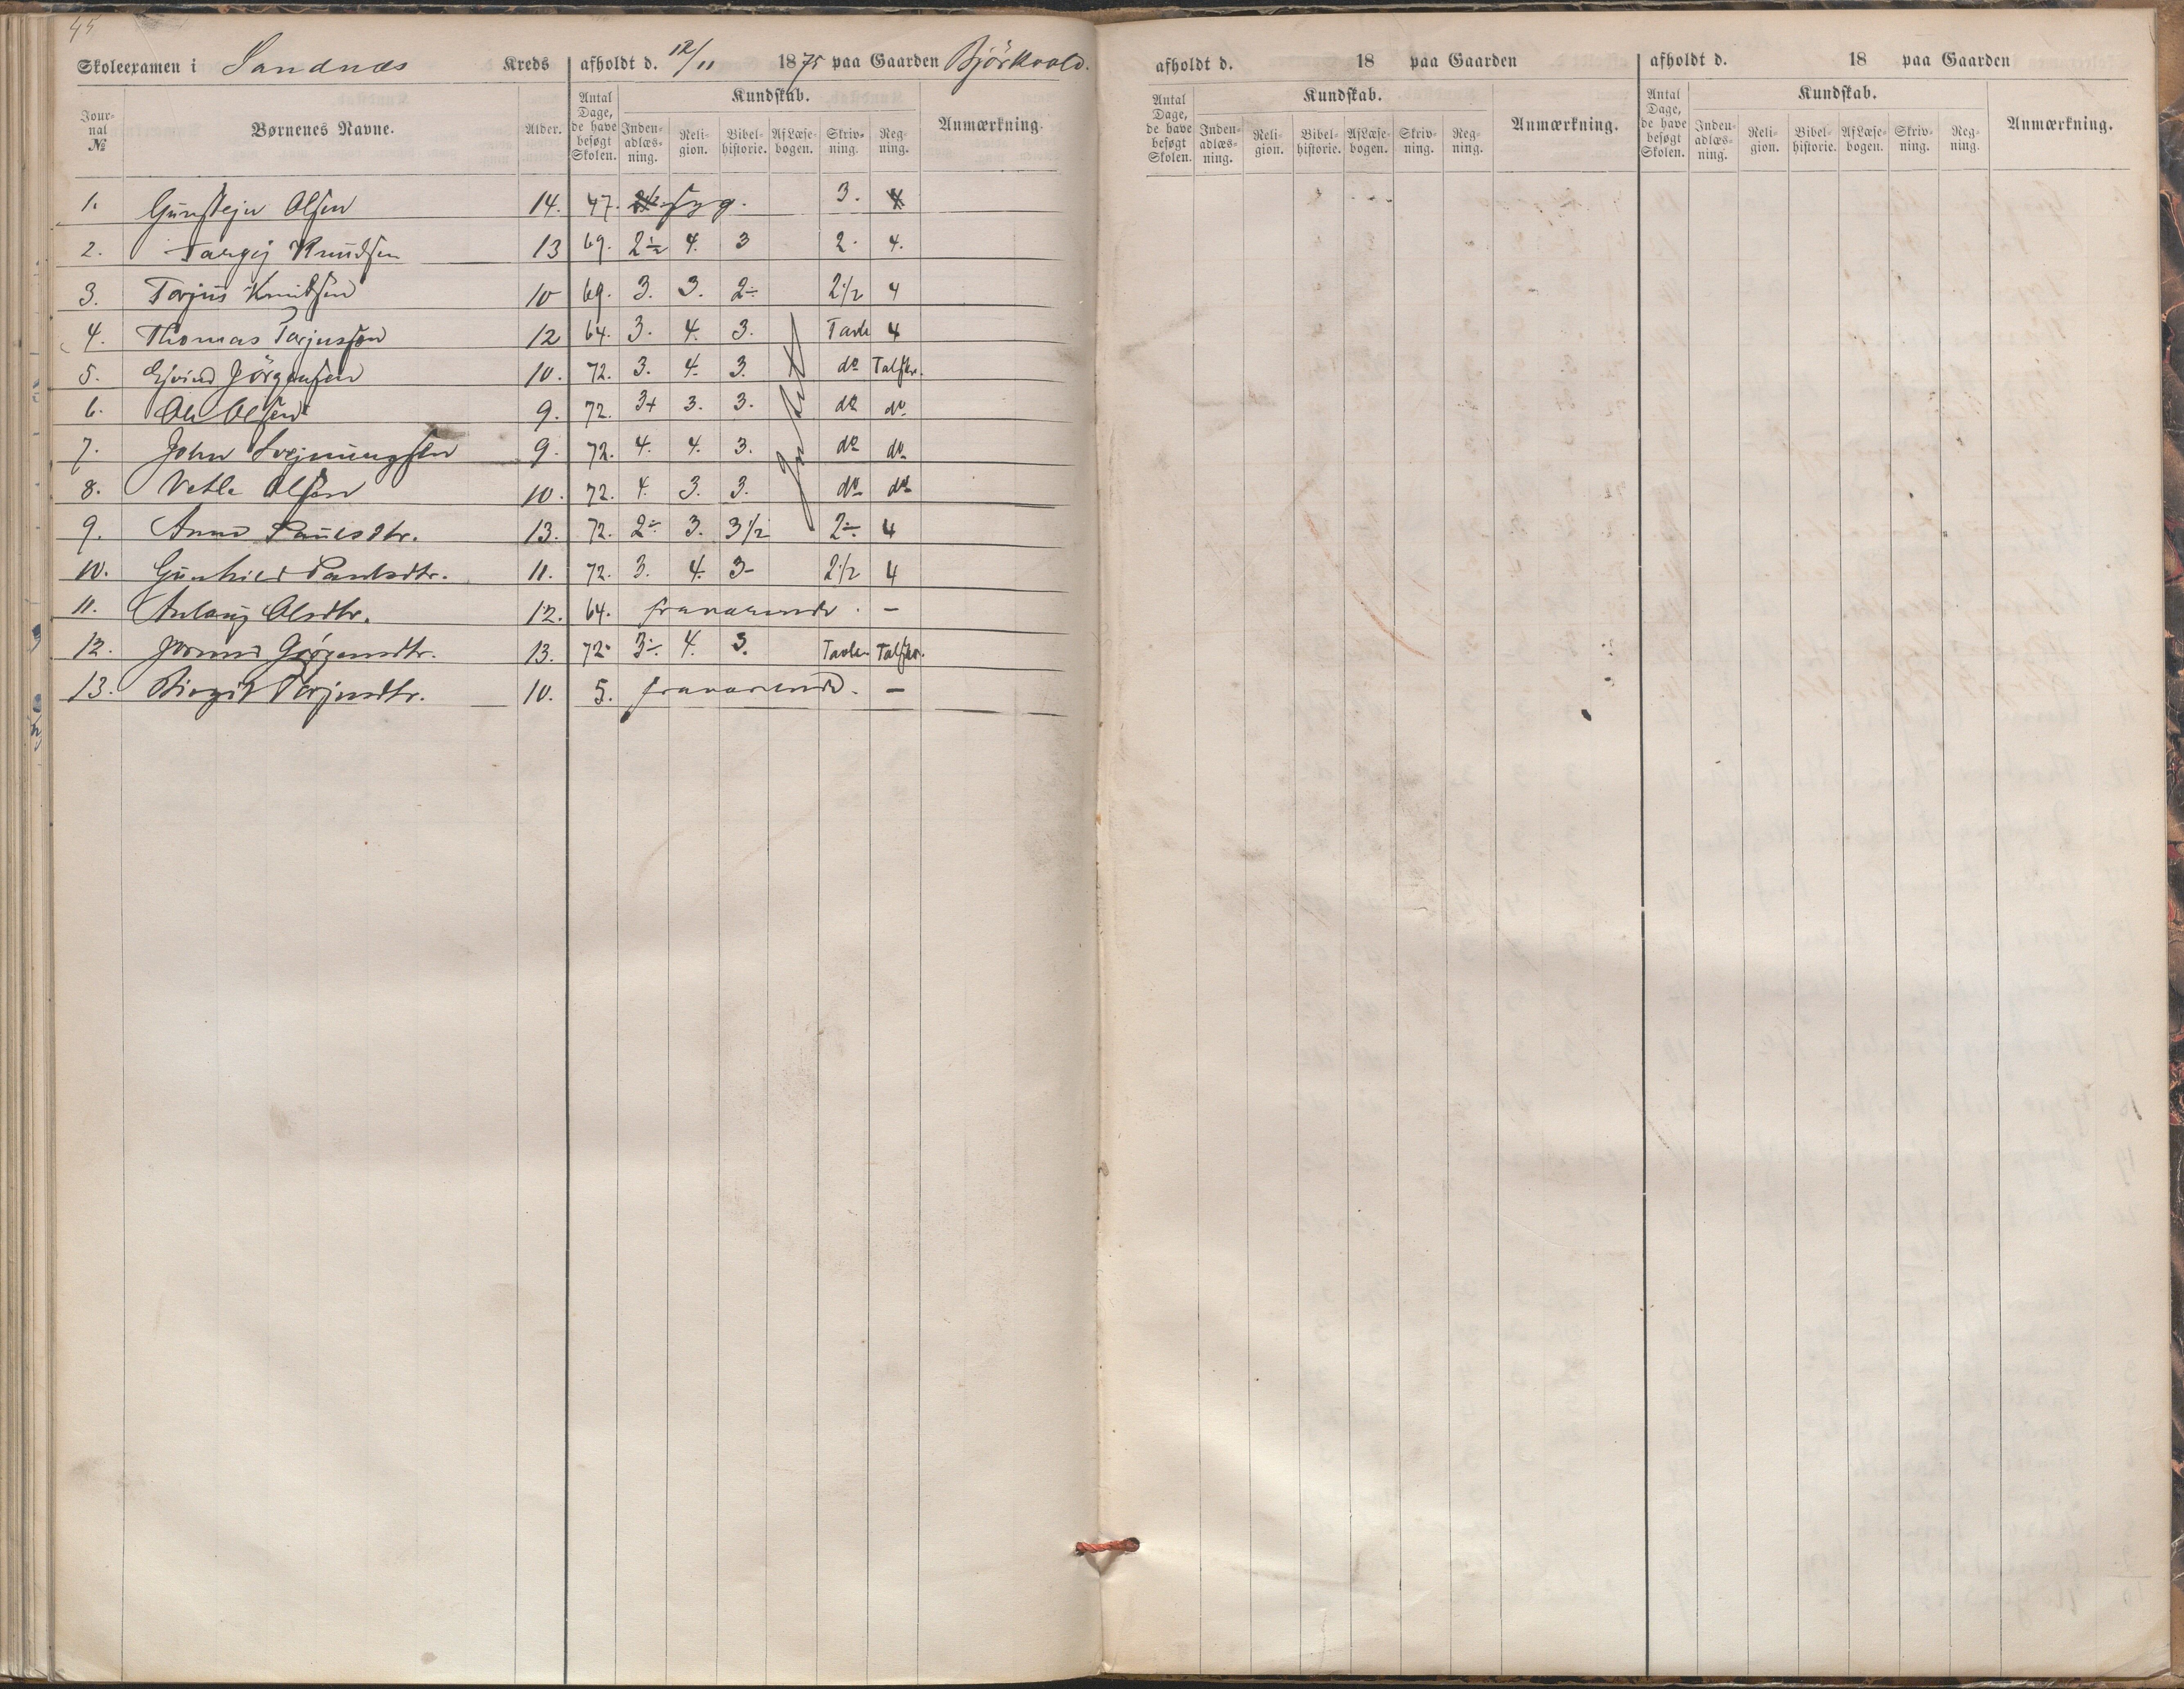 45
Skoleexamen i Sandnæs Kreds afholdt d. 12/11 1875 paa Gaarden Björkvold.
Journal № Børnenes Navne. Alder. Antal Dage, de have besøgt Skolen. Kundskab. Indenadlæsning. Religion. Bibelhistorie. Af Læsebogen. Skrivning. Regning. Anmærkning.
1. Gunstejn Olsen 14. 47. syg. 3.
2. Targej Knudsen 13 69. 2÷ 4. 3 2. 4.
3. Torjus Knudsen 10 69. 3. 3. 2÷ 2 1/2 4
4. Thomas Torjussen 12 64. 3. 4. 3. Tavle 4
5. Ejvind Jörgensen 10. 72. 3. 4. 3. do Talskr.
6. Ole Olsen 9. 72. 3+ 3. 3. do do
7. John Svejnungsen 9. 72. 4. 4. 3. do do
8. Vetle Olsen 10. 72. 4. 3. 3. do do
9. Anne Paulsdtr. 13. 72. 2÷ 3. 3 1/2 2÷ 4
10. Gunhild Paulsdtr. 11. 72. 3. 4. 3- 2 1/2 4
11. Aslaug Olsdtr. 12. 64. fraværende. –
12. Jorund Jørgensdtr. 13. 72. 3÷ 4. 3. Tavle Talskr.
13. Birgit Torjusdtr. 10. 5. fraværende. –
afholdt d. 18 paa Gaarden
Antal Dage, de have besøgt Skolen. Kundskab. Indenadlæsning. Religion. Bibelhistorie. Af Læsebogen. Skrivning. Regning. Anmærkning.
afholdt d. 18 paa Gaarden
Antal Dage, de have besøgt Skolen. Kundskab. Indenadlæsning. Religion. Bibelhistorie. Af Læsebogen. Skrivning. Regning. Anmærkning.